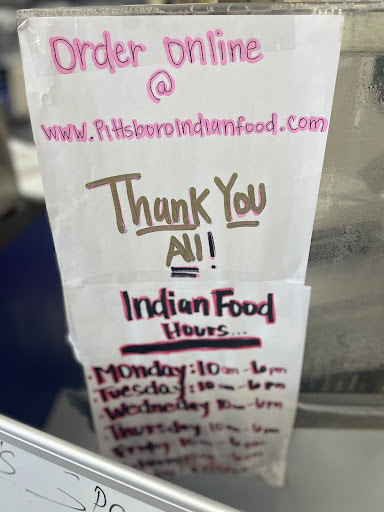 Order Online
@
www.PittsboroIndianfood.com
Thank You
All!
Indian Food
Hours...
Monday: 10am - 6pm
Tuesday: 10am - 6pm
Wednesday 10am - 6pm
Thursday: 10am - 6pm
Friday 10am - 6pm